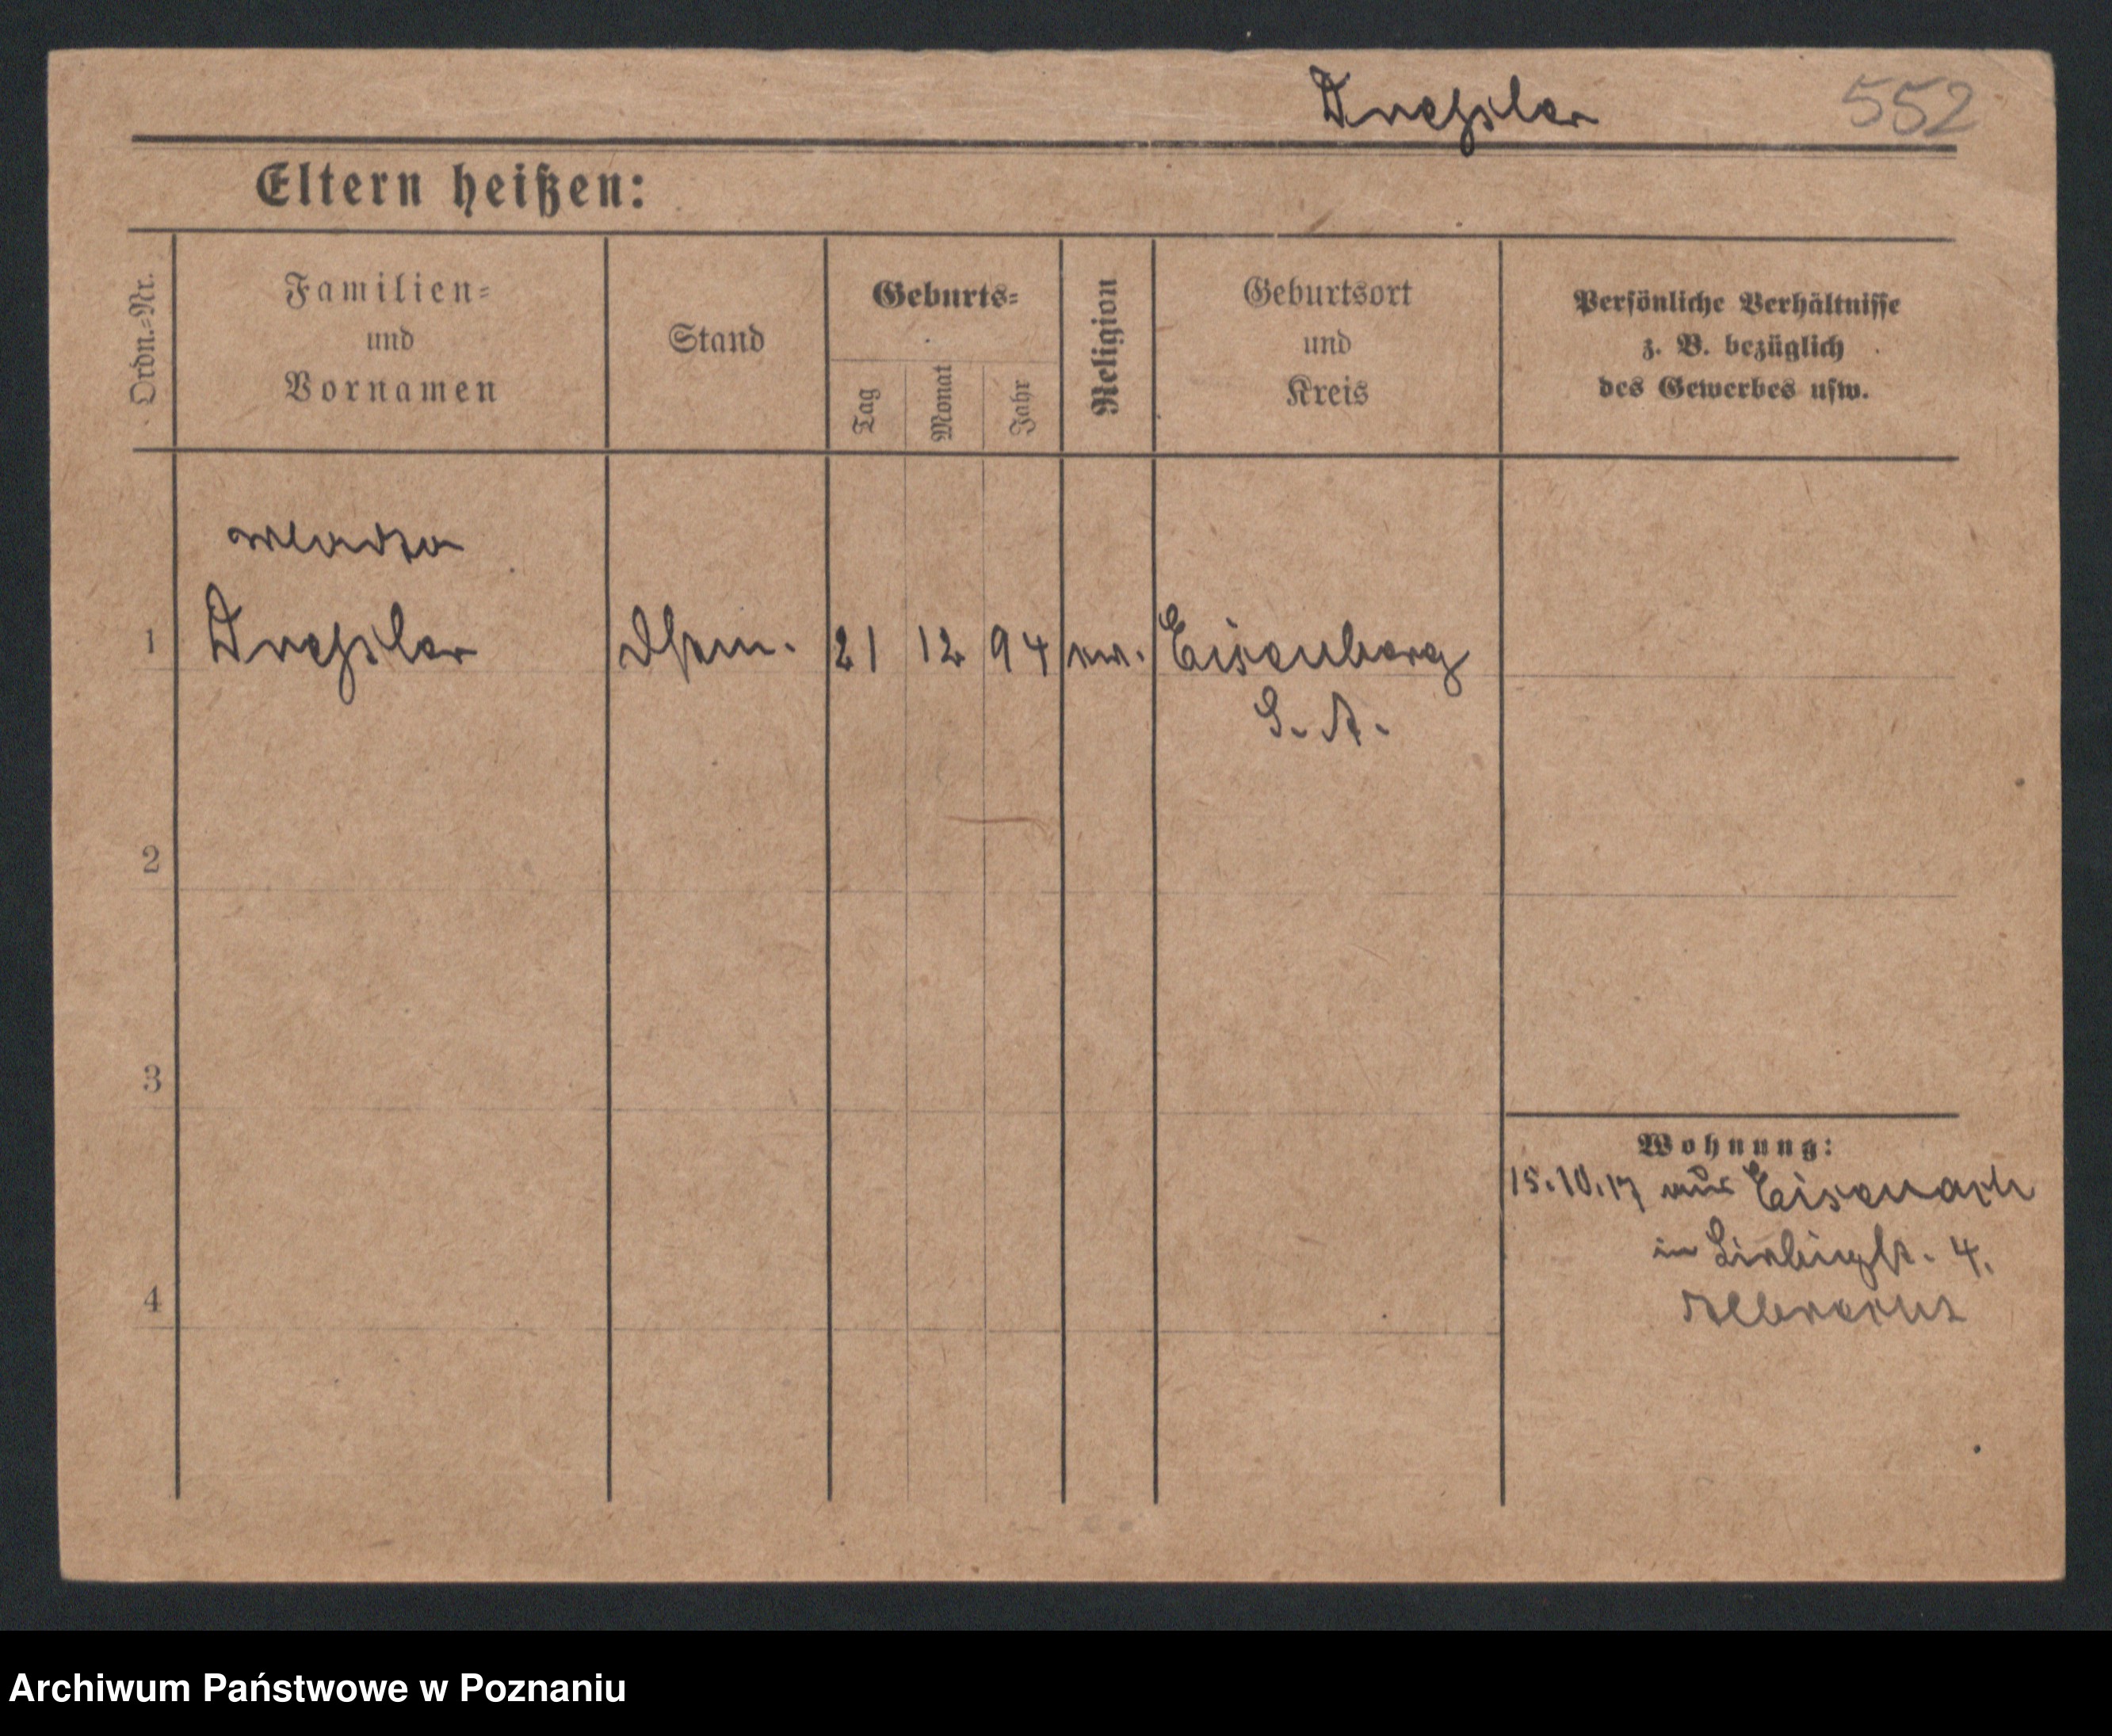 Dreßler 552
Eltern heißen:
Ordn.-Nr.
Familien-
und
Vornamen
Stand
Geburts-
Tag
Monat
Jahr
Religion
Geburtsort
und
Kreis
Persönliche Verhältnisse
z. B. bezüglich
des Gewerbes usw.
1 Dreßler 21 12 94 ev. Eisenberg
S. A.
2
3
Wohnung:
15.10.17 aus Eisenach
in Liebigst. 4.
4
Archiwum Państwowe w Poznaniu